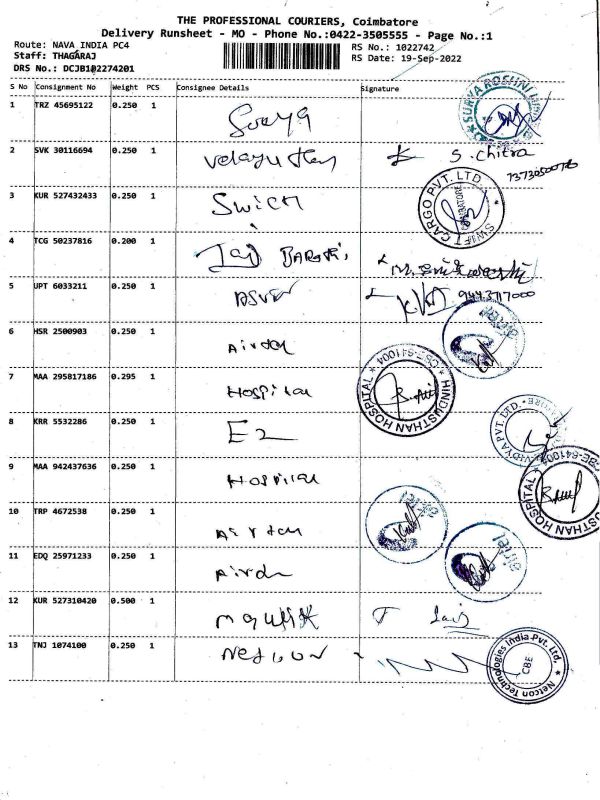 THE PROFESSIONAL COURIERS, Coimbatore
Delivery Runsheet - MO - Phone No.:0422-3505555 - Page No.:1
Route: NAVA INDIA PC4
Staff: THAGARAJ
DRS No.: DCJB102274201
RS No.: 1022742
RS Date: 19-Sep-2022
S No Consignment No Weight PCS Consignee Details Signature
1 TRZ 45695122 0.250 1 Surya
SURYA ROSHNI
2 SVK 30116694 0.250 1 S. Chitra
3 KUR 527432433 0.250 1 Swich
SWIFT CARGO PVT. LTD
COIMBATORE
4 TCG 50237816 0.200 1
5 UPT 6033211 0.250 1 9443717000
6 HSR 2500903 0.250 1 Airtel
airtel
7 MAA 295817186 0.295 1 Hospital
HINDUSTHAN HOSPITAL CBE-641004
8 KRR 5532286 0.250 1 E2
9 MAA 942437636 0.250 1 Hospital
HINDUSTHAN HOSPITAL
10 TRP 4672538 0.250 1 Airtel
airtel
11 EDQ 25971233 0.250 1 Airtel
airtel
12 KUR 527310420 0.500 1
13 TNJ 1074100 0.250 1 Netcon
Netcon Technologies India Pvt. Ltd.
CBE